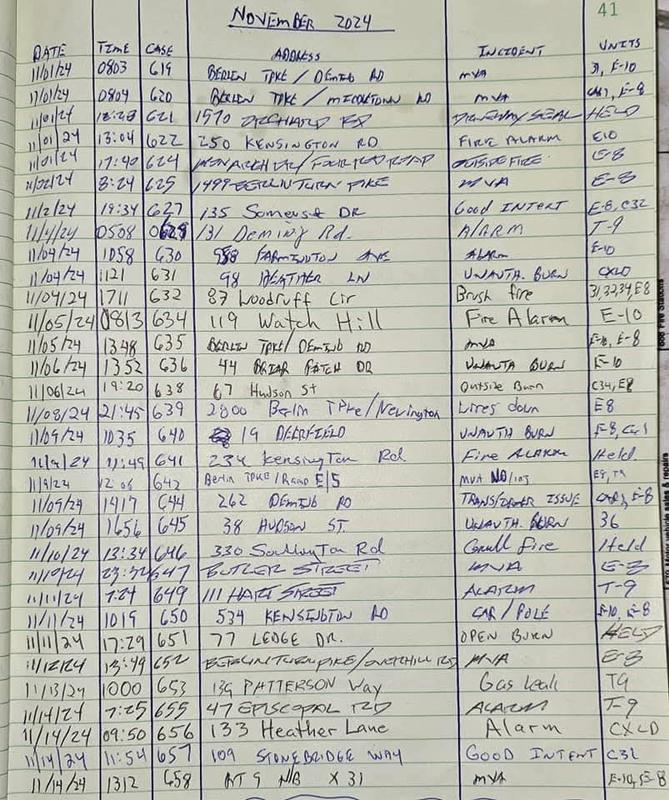 NOVEMBER 2024 41
DATE TIME CASE ADDRESS INCIDENT UNITS
11/01/24 0803 619 BERLIN TPKE / DEMING RD MVA 31, E-10
11/01/24 0804 620 BERLIN TPKE / MIDDLETOWN RD MVA CAR1, E-8
11/01/24 621 1970 ORCHARD RD HELD
11/01/24 13:04 622 250 KENSINGTON RD FIRE ALARM E10
11/01/24 17:40 624 OUTSIDE FIRE E-8
11/02/24 8:24 625 1499 BERLIN TURNPIKE MVA E-8
11/2/24 19:34 627 135 Somerset DR Good INTENT E-8, C32
11/4/24 0508 0629 131 Deming Rd. ALARM T-9
11/04/24 1058 630 FARMINGTON AVE ALARM E-10
11/04/24 1121 631 98 HEATHER LN UNAUTH. BURN CXLD
11/04/24 1711 632 87 Woodruff Cir Brush fire 31,32,34,E8
11/05/24 0813 634 119 Watch Hill Fire Alarm E-10
11/05/24 1348 635 BERLIN TPKE/DEMING RD MVA E-10, E-8
11/06/24 1352 636 44 BRIAR PATCH DR UNAUTH BURN E-10
11/06/24 19:20 638 67 Hudson St Outside Burn C34, E8
11/08/24 21:45 639 2800 Berlin TPke/Newington Wires down E8
11/09/24 1035 640 19 DEERFIELD UNAUTH BURN E-8, Car1
11/9/24 11:49 641 234 Kensington Rd Fire ALARM Held.
11/9/24 12:05 642 Berlin TPKE/Ramp E/S MVA NO/inj E8, T9
11/09/24 1417 644 262 DEMING RD TRANSFORMER ISSUE CAR1, E-8
11/09/24 1656 645 38 HUDSON ST. UNAUTH. BURN 36
11/10/24 13:34 646 330 Southington Rd fire Held
11/10/24 23:32 647 BUTLER STREET MVA E-8
11/11/24 7:24 649 111 HART STREET ALARM T-9
11/11/24 1019 650 534 KENSINGTON RD CAR/POLE E-10, E-8
11/11/24 17:29 651 77 LEDGE DR. OPEN BURN HELD
11/12/24 13:49 652 BERLIN TURNPIKE/OVERHILL RD MVA E-8
11/13/24 1000 653 139 PATTERSON Way Gas leak T9
11/14/24 7:25 655 47 EPISCOPAL RD ALARM T-9
11/14/24 09:50 656 133 Heather Lane Alarm CXLD
11/14/24 11:54 657 109 STONEBRIDGE WAY GOOD INTENT C32
11/14/24 1312 658 RT 9 NB X 31 MVA E-10, E-8